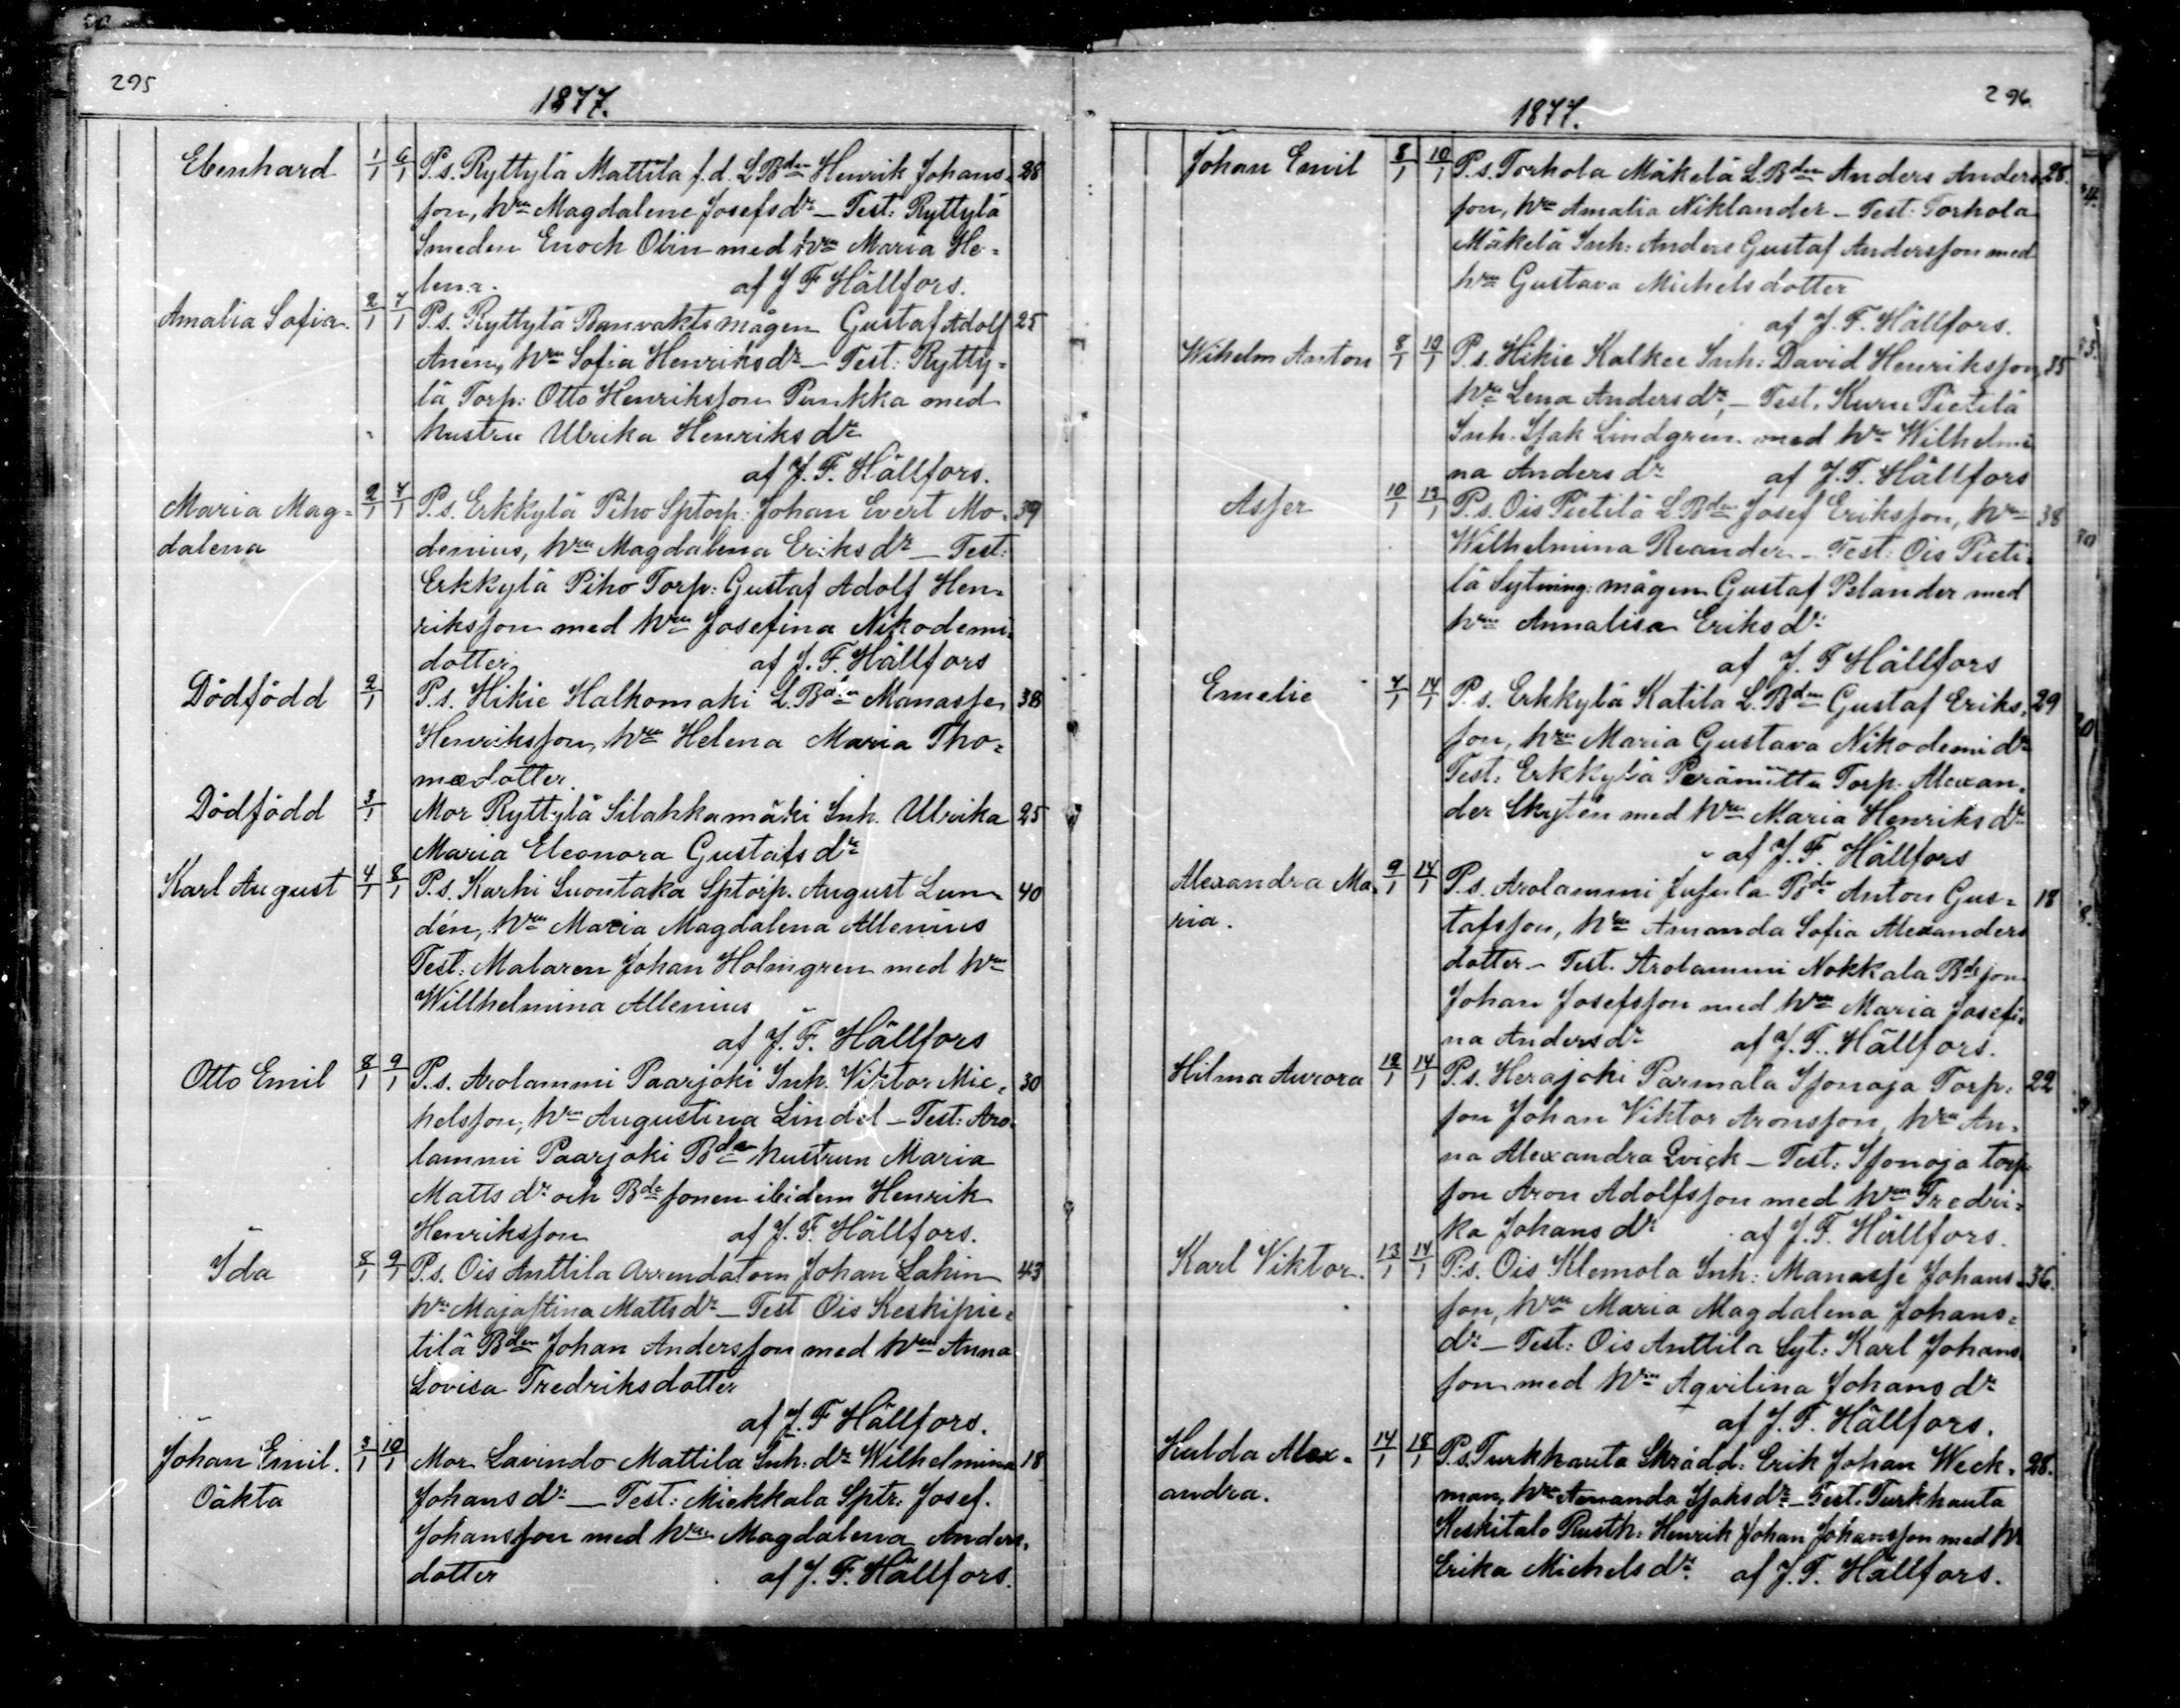 295
1877.
Ebenhard 1/1 6/1 P.s. Ryttylä Mattila f.d. L.Bden Henrik Johans= 28
son, hru Magdalene Josefsdr — Test: Ryttylä
Smeden Enoch Olin med hru Maria He=
lena. af J F Hällfors.
Amalia Sofia. 2/1 7/1 P.s. Ryttylä Banvakts mågen Gustaf Adolf 25
hru Sofia Henriksdr — Test: Rytty=
lä Torp: Otto Henriksson Punkka med
hustru Ulrika Henriksdr
af J. F. Hällfors.
Maria Mag= 2/1 7/1 P.s. Erkkylä Piho Sptorp: Johan Evert Mo= 39
dalena denius, hru Magdalena Eriksdr — Test:
Erkkylä Piho Torp: Gustaf Adolf Hen=
riksson med hru Josefina Nikodemi=
dotter, af J. F. Hällfors
Dödfödd 2/1 P.s. Hikie Halkomaki L.Bden Manasse 38
Henriksson, hru Helena Maria Tho=
mædotter.
Dödfödd 3/1 Mor Ryttylä Silahkamäki Inh. Ulrika 25
Maria Eleonora Gustafsdr
Karl August 4/1 8/1 P.s. Karhi Suontaka Sptorp. August Lun= 40
dén, hru Maria Magdalena Allenius
Test: Malaren Johan Holmgren med hru
Willhelmina Allenius
af J. F. Hällfors
Otto Emil 8/1 9/1 P.s. Arolammi Paarjoki Inh. Viktor Mic= 30
helsson, hru Augustina Lindel — Test: Aro=
lammi Paarjoki Bde hustrun Maria
Mattsdr och Bde sonen ibidem Henrik
Henriksson af J. F. Hällfors.
Ida 8/1 9/1 P.s. Ois Anttila Arrendatorn Johan Lahin 43
hru Majastina Mattsdr — Test Ois Keskipie=
tilä Bden Johan Andersson med hru Anna
Lovisa Fredriksdotter
af J. F Hällfors.
Johan Emil. 3/1 10/1 Mor Lavindo Mattila Inh: dr Wilhelmina 18
Oäkta Johansdr — Test: Miekkala Sptr: Josef.
Johansson med hru Magdalena Anders=
dotter af J. F. Hällfors.
296
1877.
Johan Emil 8/1 10/1 P.s. Torhola Mäkelä L.Bden Anders Anders= 28.
son, hru Amalia Niklander — Test: Torhola
Mäkelä Inh: Anders Gustaf Andersson med
hru Gustava Michelsdotter
af J. F. Hällfors.
Wihelm Anton 8/1 10/1 P.s. Hikie Kalkee Inh: David Henriksson, 35
hru Lena Andersdr, — Test. Kuru Pietilä
Inh. Isak Lindgren med hru Wilhelmi
na Andersdr af J. F. Hällfors
Asser 10/1 13/1 P.s. Ois Pietilä L.Bden Josef Eriksson, hru 38
Wilhelmina Reander — Test: Ois Pieti=
lä Sytning: mågen Gustaf Pelander med
hru Annalisa Eriksdr
af J. F Hällfors
Emelie 7/1 14/1 P.s. Erkkylä Katila L.Bden Gustaf Eriks= 29
son, hru Maria Gustava Nikodemidr
Test: Erkkylä Torp. Alexan=
der Skyten med hru Maria Henriksdr
af J. F. Hällfors
Alexandra Ma= 9/1 14/1 P.s. Arolammi Jusula Bde Anton Gus= 18
ria. tafsson, hru Amanda Sofia Alexanders
dotter — Test. Arolammi Nokkala Bdeson
Johan Josefsson med hru Maria Josefi=
na Andersdr af J. F. Hällfors.
Hilma Aurora 12/1 14/1 P.s. Herajoki Parmala Isonoja Torp: 22
son Johan Viktor Aronsson, hru An=
na Alexandra Qvick — Test: Isonoja torp
son Aron Adolfsson med hru Fredri=
ka Johansdr af J. F. Hällfors.
Karl Viktor. 13/1 14/1 P.s. Ois Klemola Inh: Manasse Johans= 36.
son, hru Maria Magdalena Johans=
dr — Test: Ois Anttila Syt: Karl Johans
son med hru Aqvilina Johansdr
af J. F. Hällfors.
Hulda Alex= 14/1 18/1 P.s. Turkhauta Skrädd: Erik Johan Weck= 28.
andra. man, hru Amanda Isaksdr — Test: Turkhauta
Keskitalo Rusth: Henrik Johan Johansson med hr
Erika Michelsdr. af J. F. Hällfors.